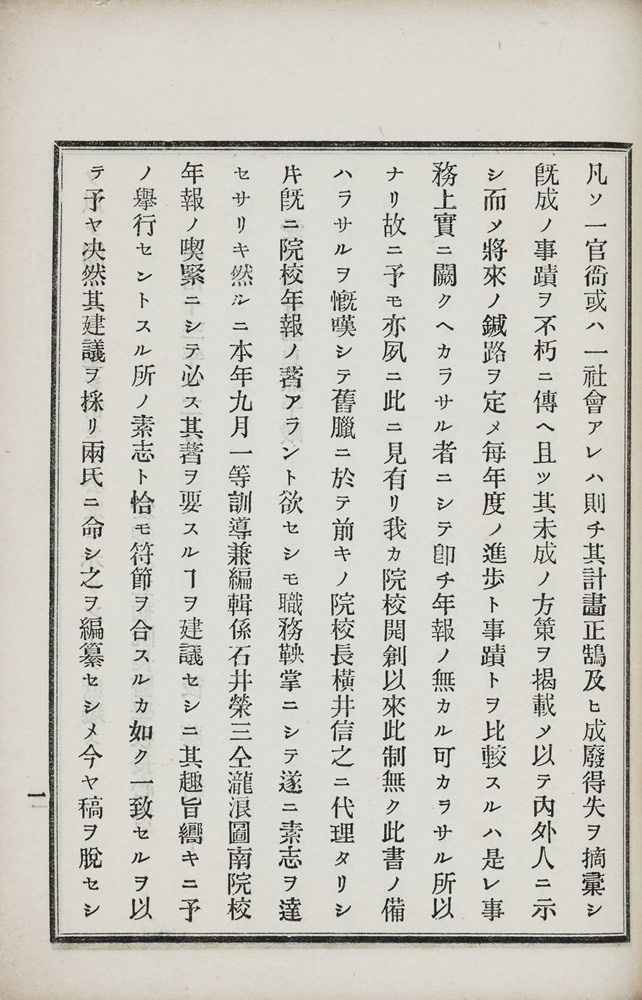 凡ソ一官衙或ハ一社會アレハ則チ其計畵正鵠及ヒ成廢得失ヲ摘彙シ
旣成ノ事蹟ヲ不朽ニ傳ヘ且ツ其未成ノ方策ヲ揭載メ以テ內外人ニ示
シ而メ將來ノ鍼路ヲ定メ每年度ノ進步ト事蹟トヲ比較スルハ是レ事
務上實ニ闕クヘカラサル者ニシテ卽チ年報ノ無カル可カラサル所以
ナリ故ニ予モ亦夙ニ此ニ見有リ我カ院校開創以來此制無ク此書ノ備
ハラサルヲ慨嘆シテ舊臘ニ於テ前キノ院校長橫井信之ニ代理タリシ
片旣ニ院校年報ノ著アラント欲セシモ職務鞅掌ニシテ遂ニ素志ヲ達
セサリキ然ルニ本年九月一等訓導兼編輯係石井榮三仝瀧浪圖南院校
年報ノ喫緊ニシテ必ス其著ヲ要スルヿヲ建議セシニ其趣旨嚮キニ予
ノ擧行セントスル所ノ素志ト恰モ符節ヲ合スルカ如ク一致セルヲ以
テ予ヤ决然其建議ヲ採リ兩氏ニ命シ之ヲ編纂セシメ今ヤ稿ヲ脫セシ
一